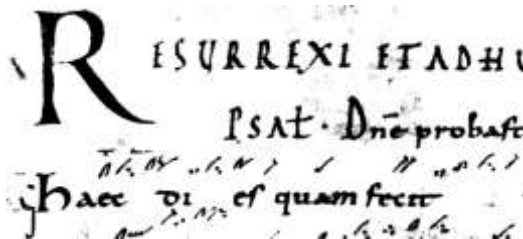 RESURREXI ET ADHU
PSAL. Dne probast
haec di es quam fecit